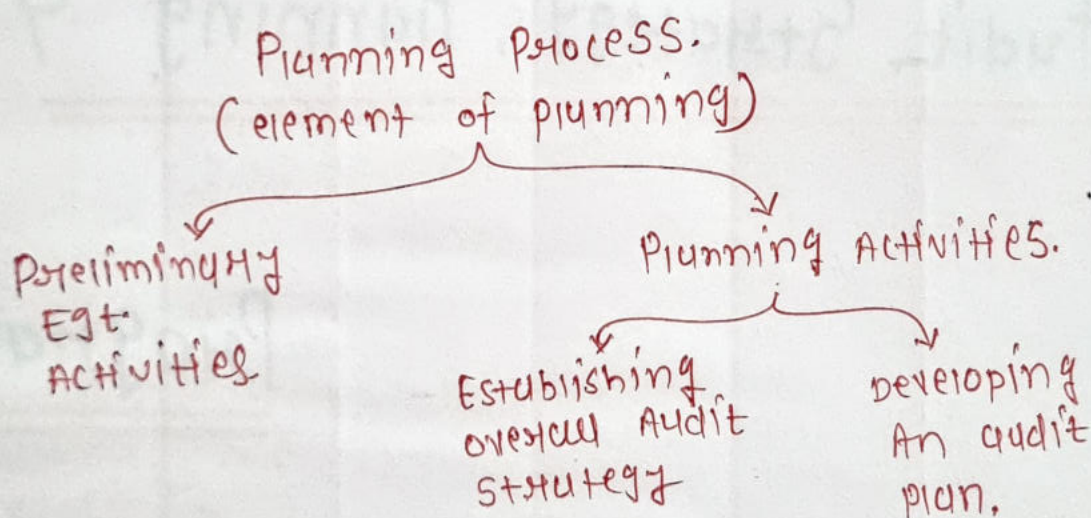 Planning Process.
(element of planning)
Preliminary
Egt.
Activities
Planning Activities.
Establishing
overall Audit
Strategy
Developing
An audit
plan.